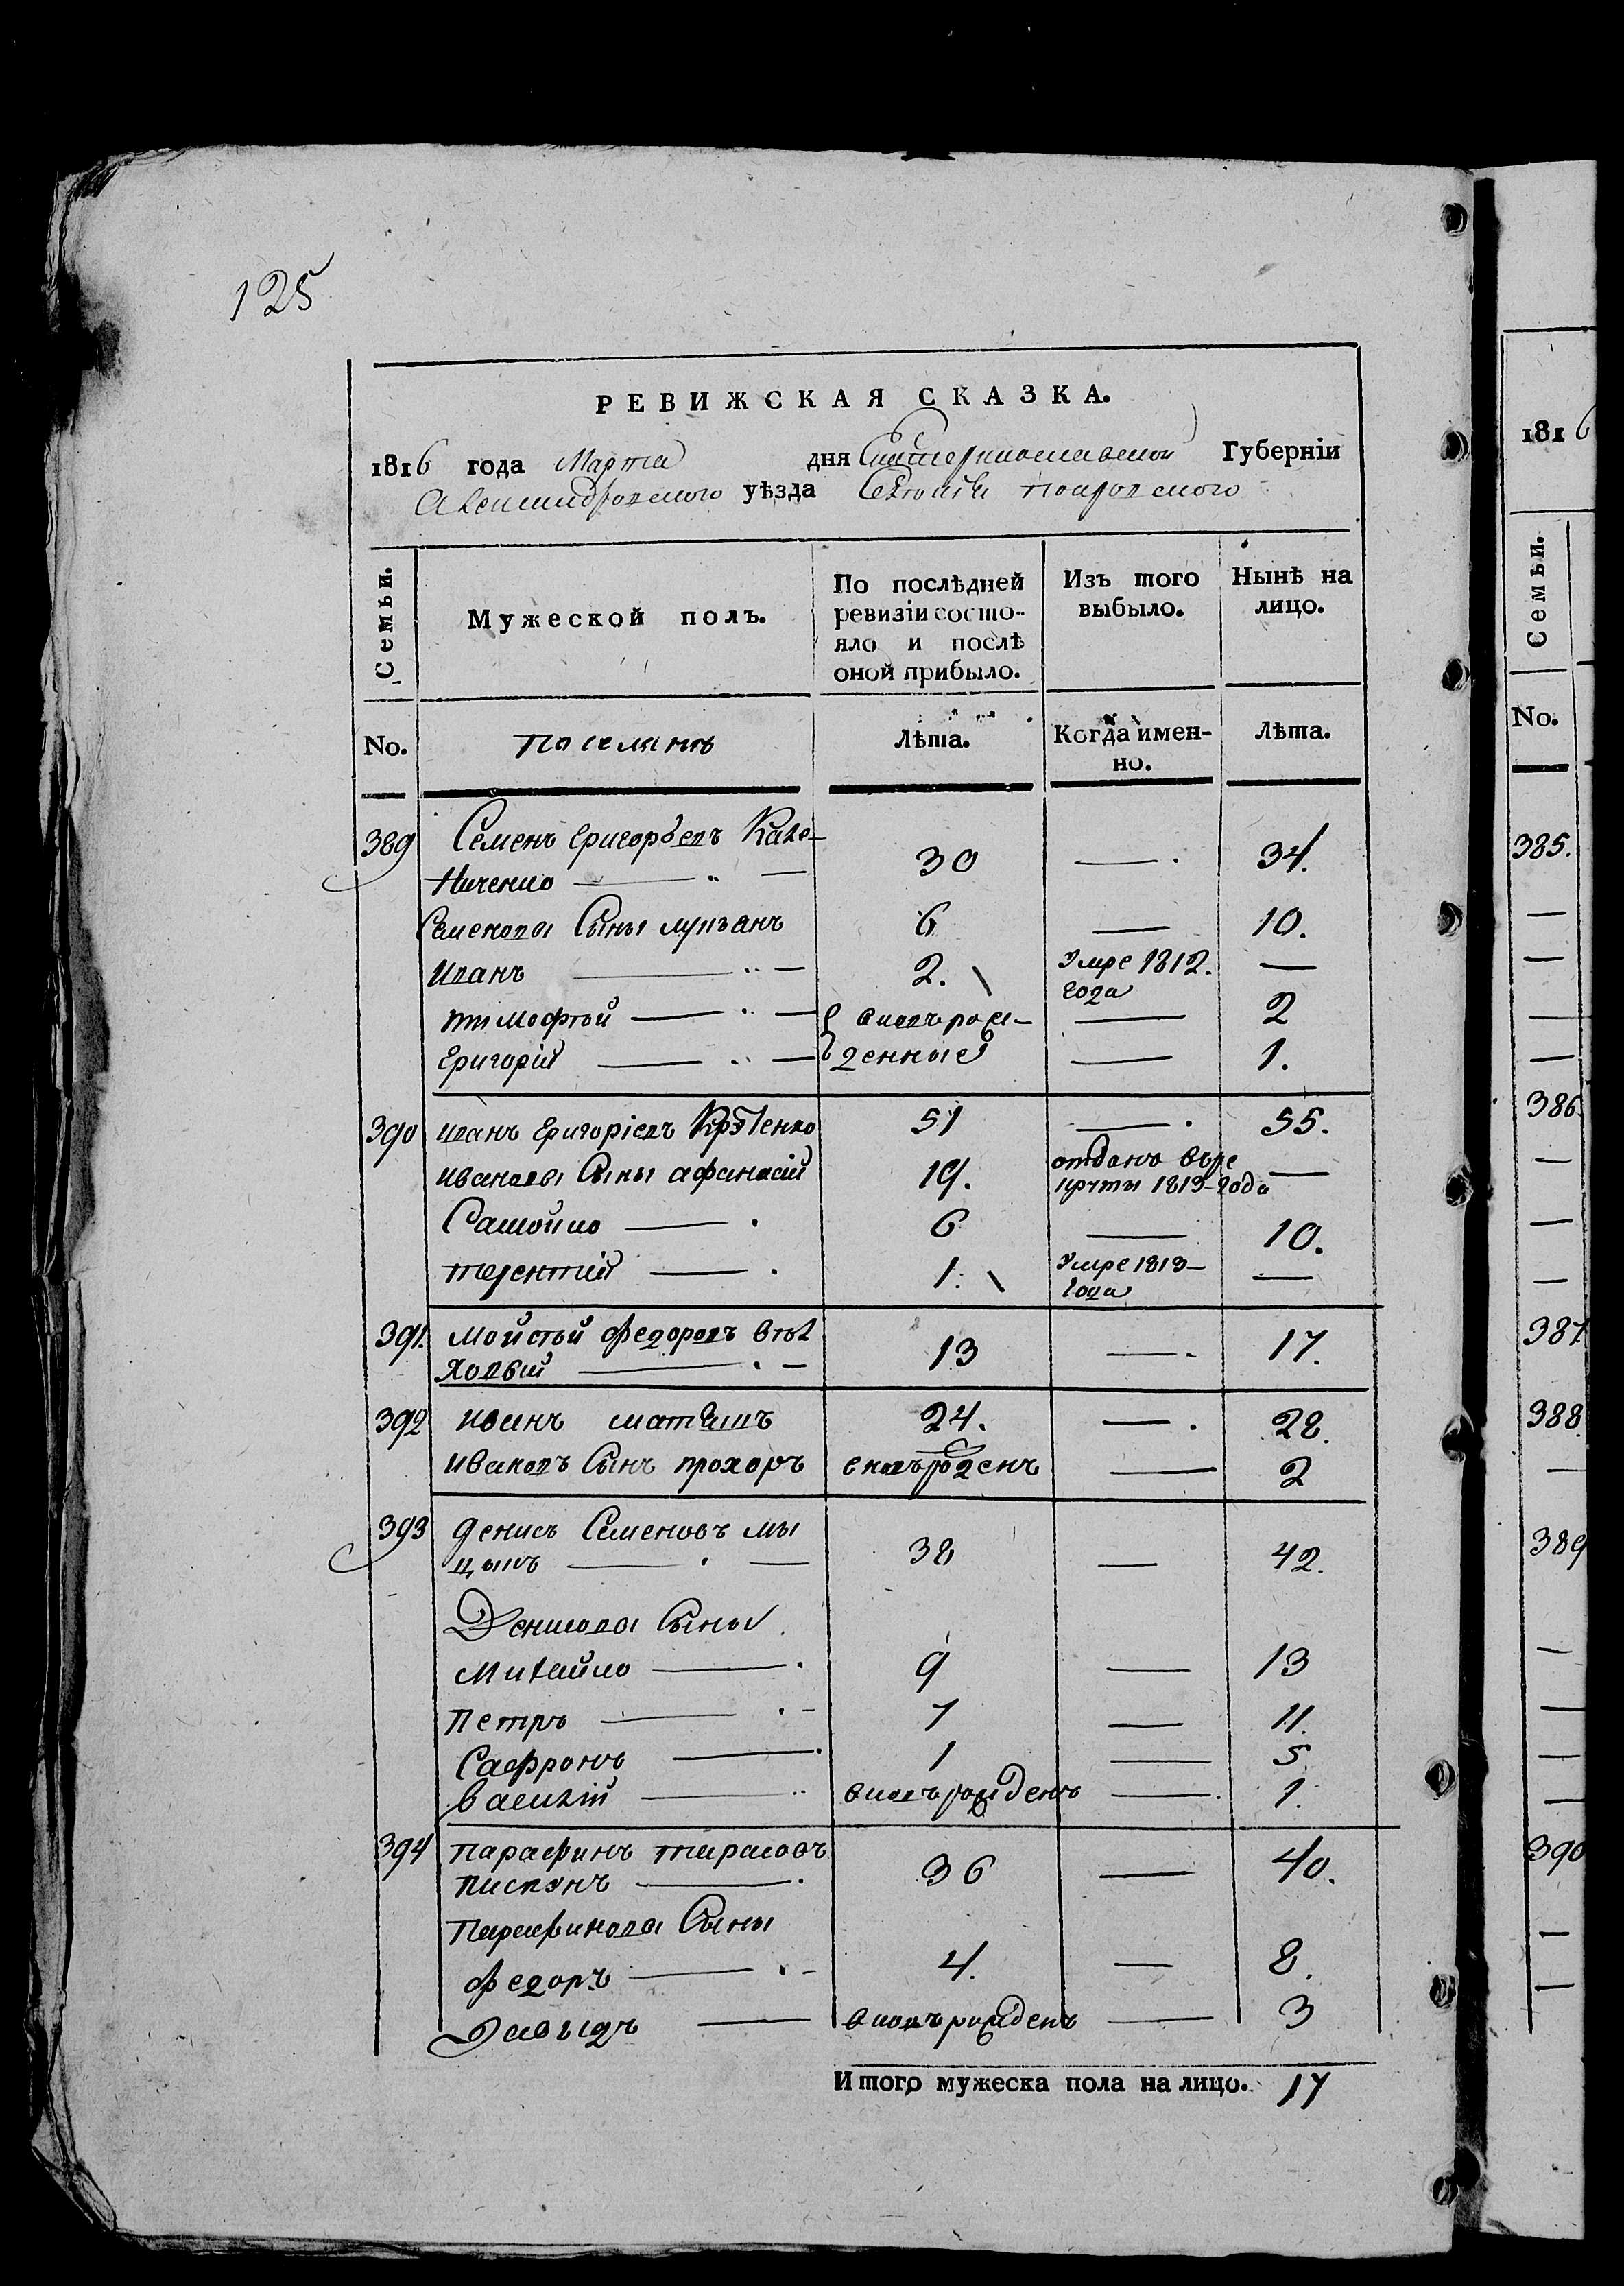 125
РЕВИЖСКАЯ СКАЗКА.
1816 года Марта дня Екатеринославской Губерніи
Александровского уѣзда Селенія покровского
Семьи.
Мужеской полъ.
По послѣдней ревизіи состо-
яло и послѣ
оной прибыло.
Изъ того
выбыло.
Нынѣ на
лицо.
No.
Поселянъ
Лѣта.
Когда имен-
но.
Лѣта.
389 Семенъ Григорьевъ Кале-
ниченко 30 34.
Семенова Сыны лукъянъ 6 10.
Иванъ 2. Умре 1812.
года
тимофѣй вновьрож- 2
Григорій денные 1.
390 иванъ Григоріевъ 51 55.
иванова Сыны афанасій 19. отданъ въре
круты 1813 года
Самойло 6 10.
терентій 1. Умре 1813
года
391. Мойсѣй федоровъ
13 17.
392 иванъ 24. 28.
ивановъ Сынъ прохоръ вновърожденъ 2
393 денисъ Семеновъ мы
цыкъ 38 42.
Денисова Сыны
Михайло 9 13
Петръ 7 11.
Сафронъ 1 5
василій вновърожденъ 1.
394 Парафинъ тарасовъ
пискунъ 36 40.
Парафинова Сыны
федоръ 4. 8.
Давыдъ вновърожденъ 3
Итого мужеска пола на лицо. 17
1816
Семьи.
No.
385.
386.
387
388
389
390